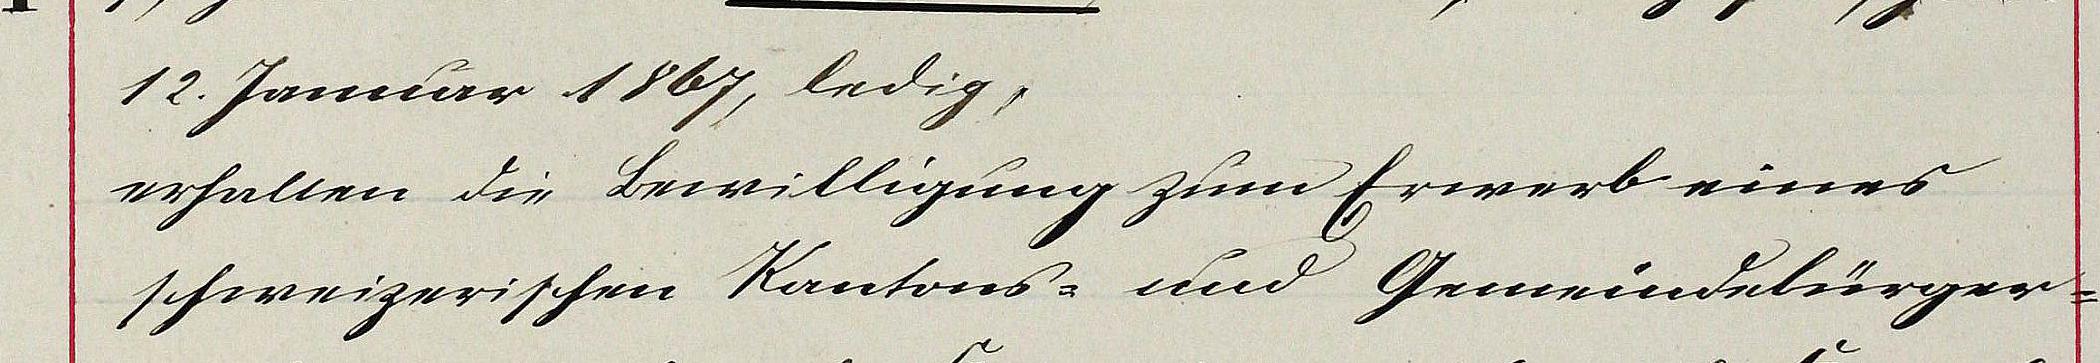 12. Januar 1867, ledig,
erhalten die Bewilligung zum Erwerb eines
schweizerischen Kantons= und Gemeindebürger=